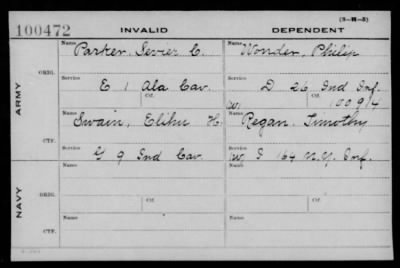 (3-H-5)
100472 INVALID DEPENDENT
Name Name
Parker, Sevier C. Wonder, Philip
ORIG.
Service Service
E 1 Ala Cav. D 26 Ind Inf.
Ctf. Ctf.
(W) 100914
ARMY
Name Name
Swain, Elihu H. Regan, Timothy
CTF.
Service Service
G 9 Ind Cav. (W) I 164 N.Y. Inf.
Name Name
ORIG.
Service Service
Ctf. Ctf.
NAVY
Name Name
CTF.